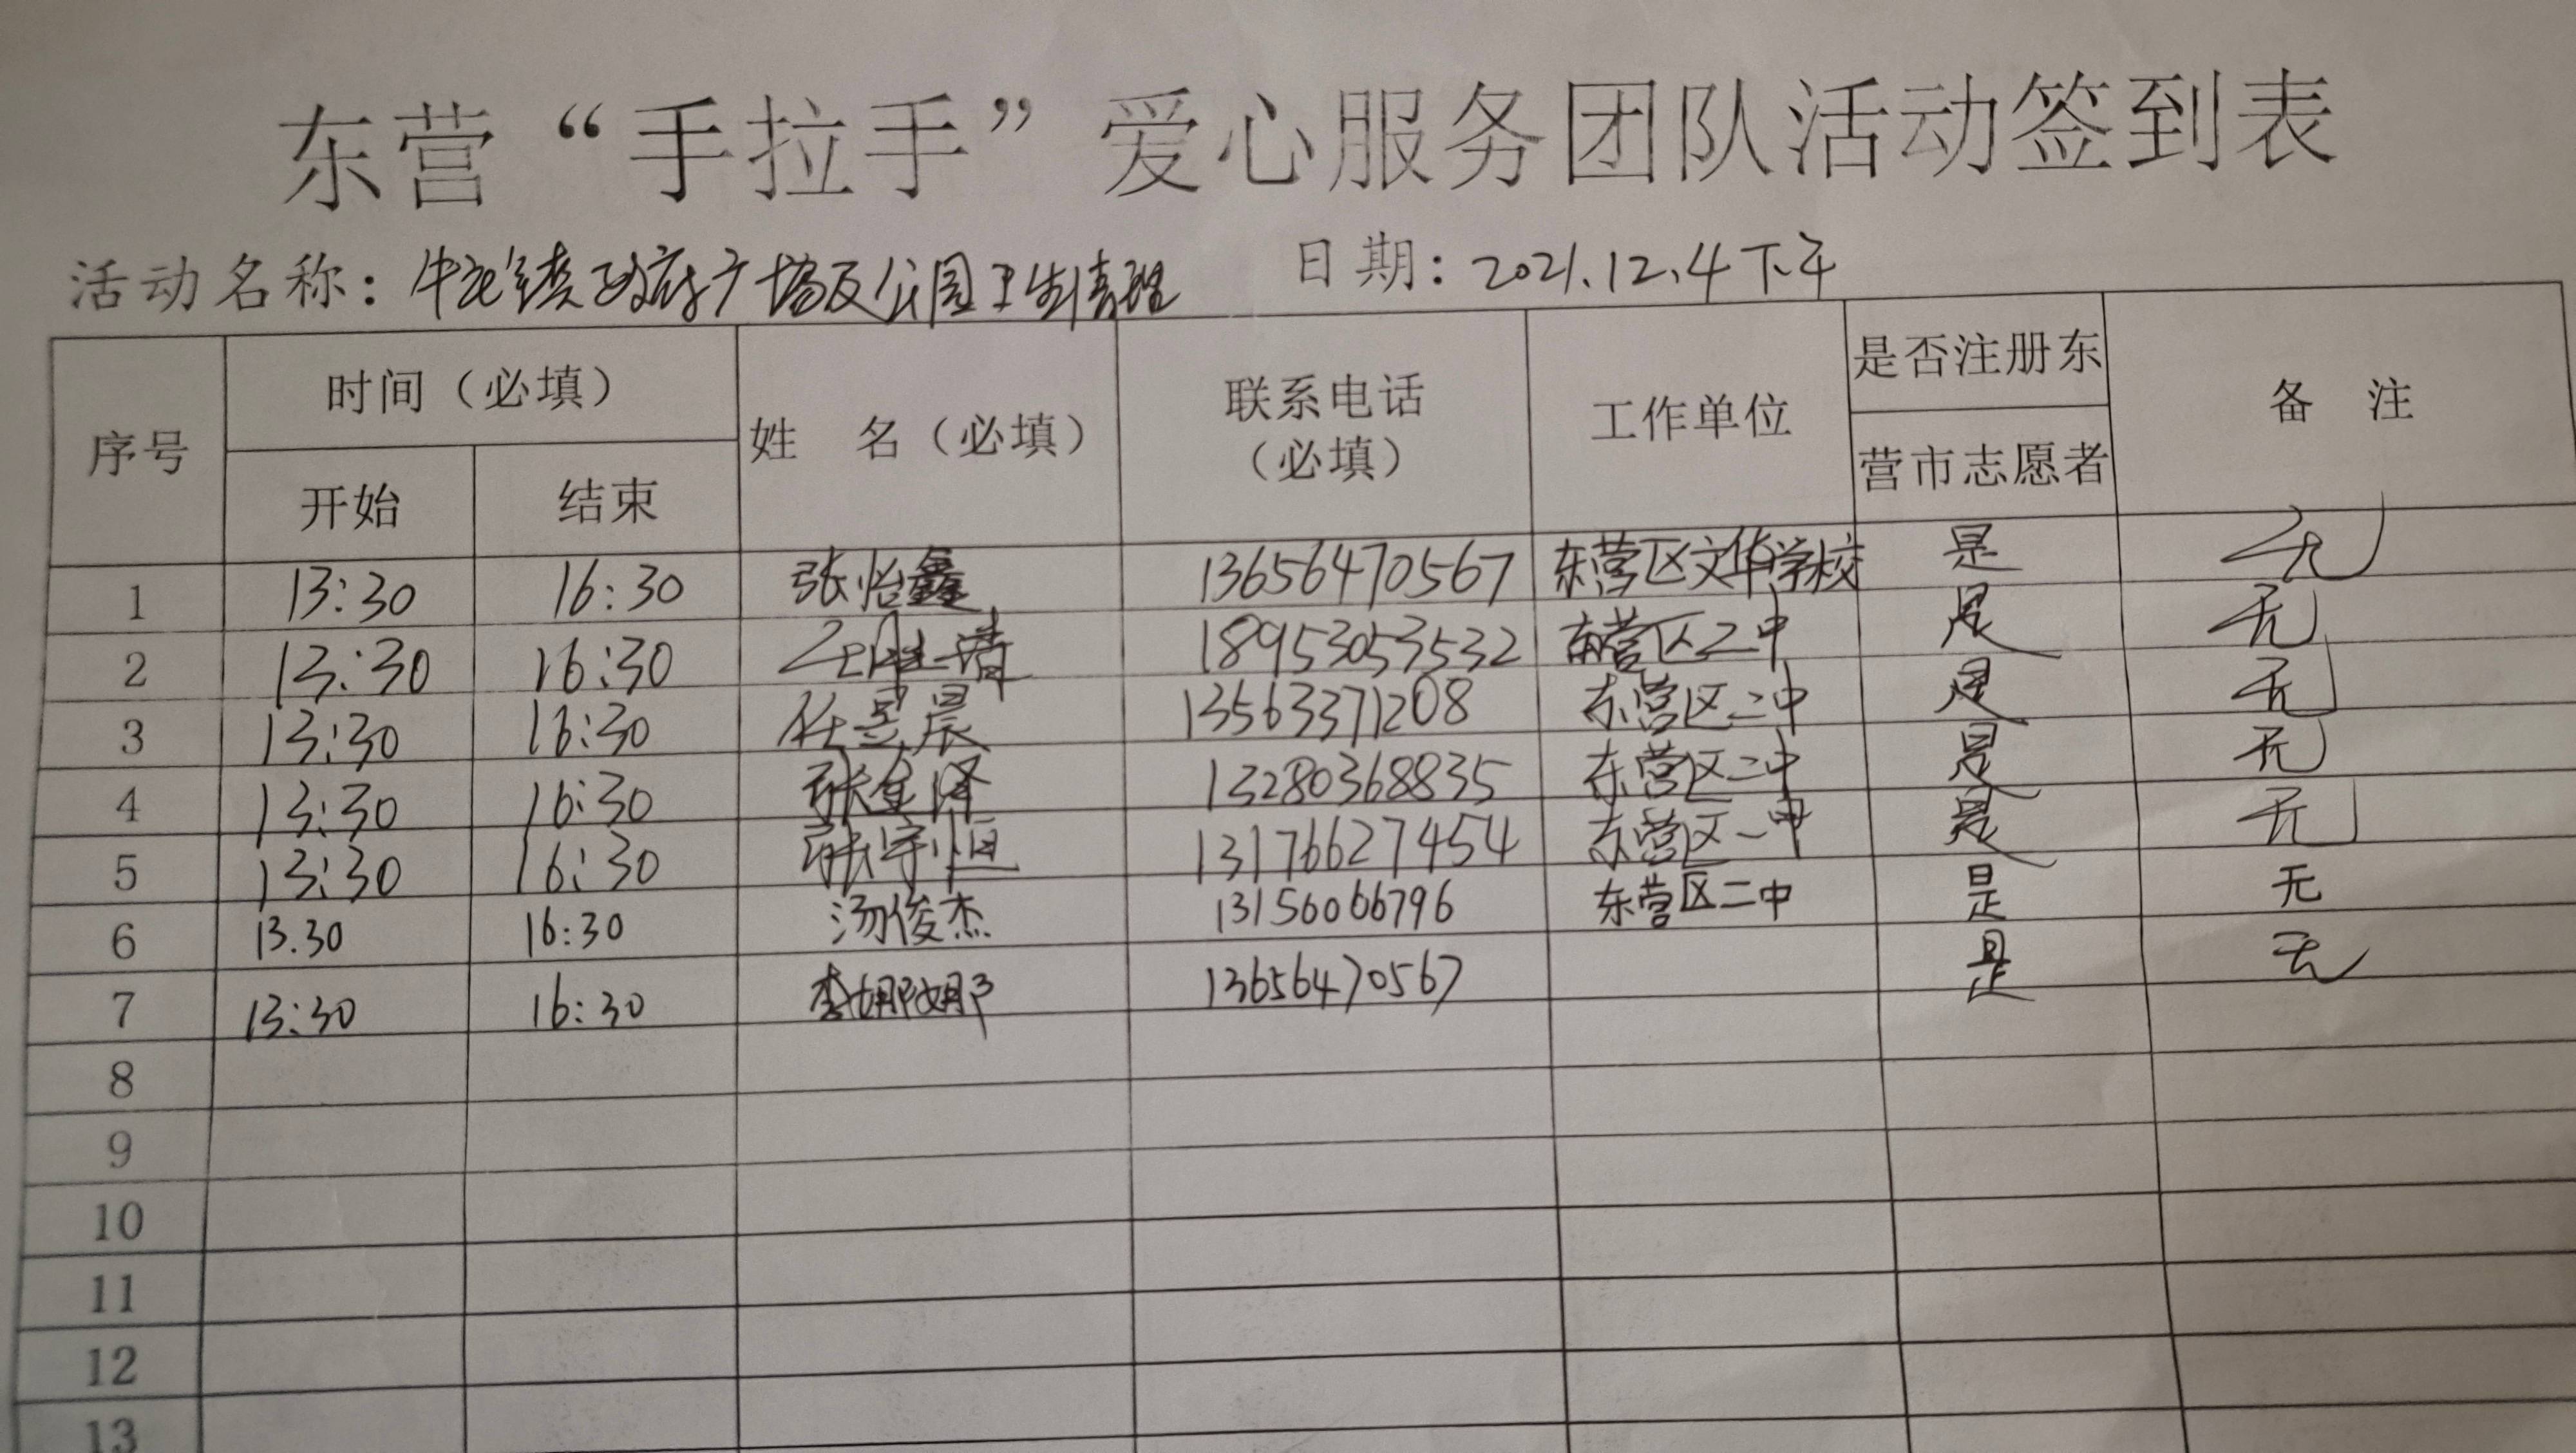 东营“手拉手”爱心服务团队活动签到表
活动名称：牛庄镇政府广场及公园卫生清理 日期：2021.12.4下午
序号 时间（必填） 姓 名（必填） 联系电话（必填） 工作单位 是否注册东营市志愿者 备 注
开始 结束
1 13:30 16:30 张怡鑫 13656470567 东营区文华学校 是 无
2 13:30 16:30 18953053532 东营区二中 是 无
3 13:30 16:30 任昱晨 13563371208 东营区二中 是 无
4 13:30 16:30 张金泽 13280368835 东营区二中 是 无
5 13:30 16:30 张宇恒 13176627454 东营区一中 是 无
6 13.30 16:30 汤俊杰 13156066796 东营区二中 是 无
7 13:30 16:30 李娜娜 13656470567 是 无
8
9
10
11
12
13